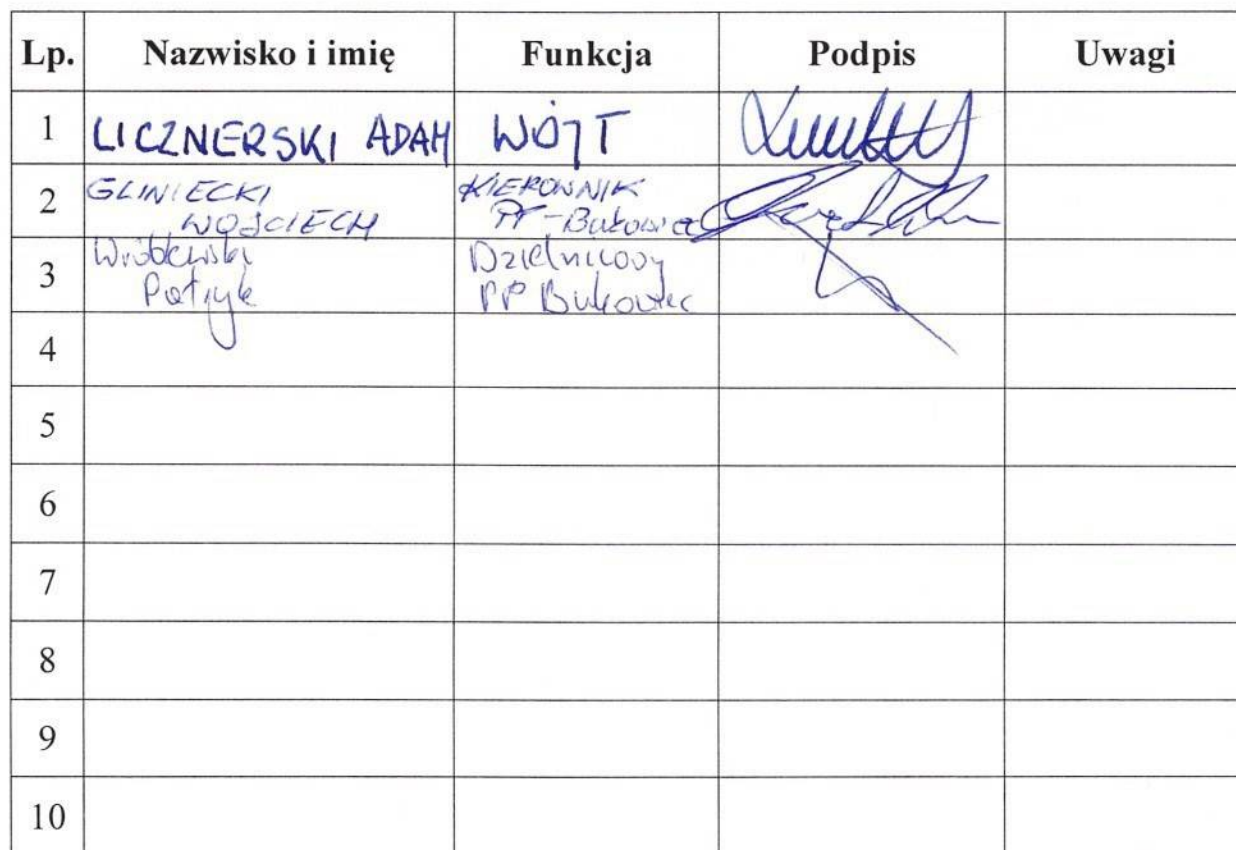 Lp. Nazwisko i imię Funkcja Podpis Uwagi
1 LICZNERSKI ADAM WÓJT
2 GLINIECKI KIEROWNIK
WOJCIECH PP-Bukowiec
3 Wróblewski Dzielnicowy
Patryk PP Bukowiec
4
5
6
7
8
9
10